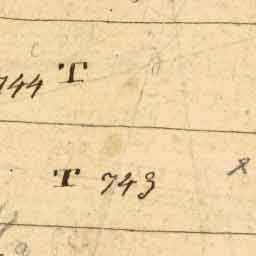 744 T
T 743